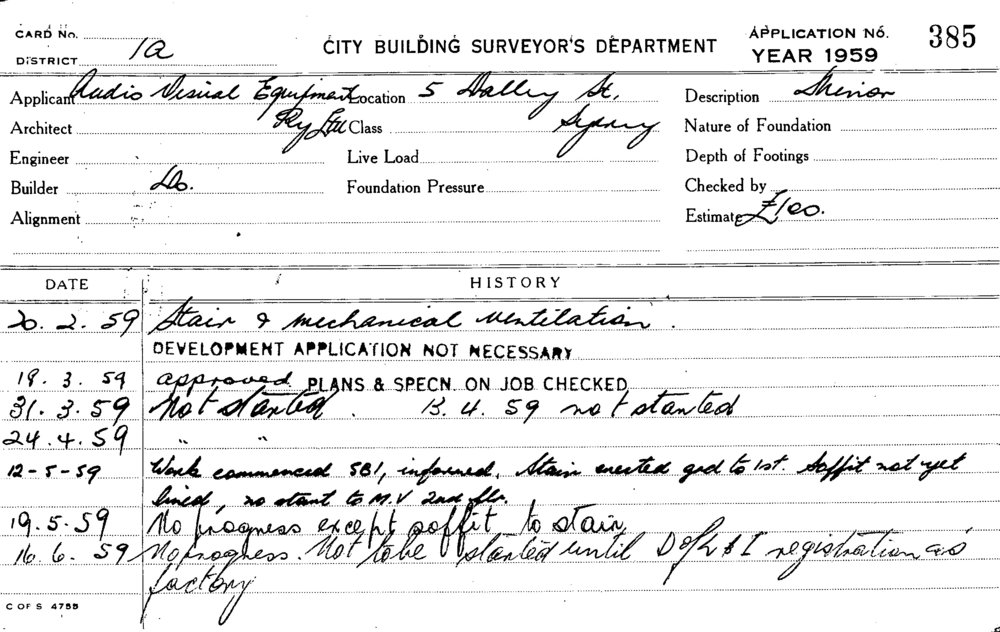 CARD No.
DISTRICT 1a
CITY BUILDING SURVEYOR'S DEPARTMENT
APPLICATION No. 385
YEAR 1959
Applicant Audio Visual Equipment Location 5 Dalley St. Description
Architect Pty Ltd Class Sydney Nature of Foundation
Engineer Live Load Depth of Footings
Builder Do. Foundation Pressure Checked by
Alignment Estimate £100.
DATE HISTORY
20. 2. 59 Stair & mechanical ventilation.
DEVELOPMENT APPLICATION NOT NECESSARY
18. 3. 59 approved PLANS & SPECN. ON JOB CHECKED
31. 3. 59 Not started. 13. 4. 59 not started
24. 4. 59 " "
12-5-59 Work commenced SBI, informed. Stair erected grd to 1st. Soffit not yet
lined, no start to M.V 2nd flr.
19. 5. 59 No progress except soffit to stair
16. 6. 59 No progress. Not to be started until D of L & I registration as
factory
C OF S 4755